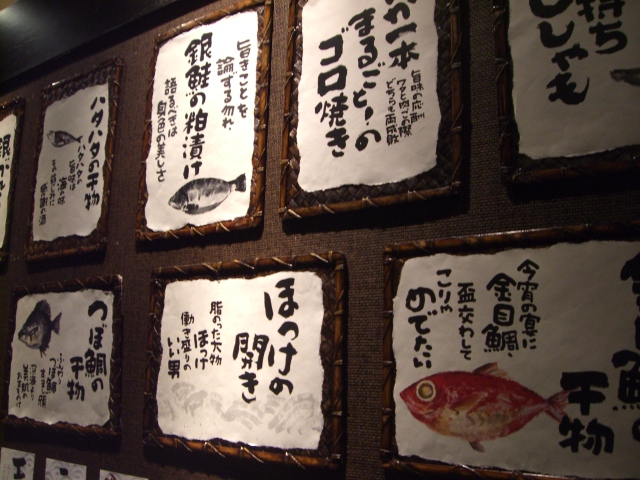 銀が
ハタハタの干物
ハタハタの
旨味は
海の味
旨きことを
論ずる勿れ
銀鮭の粕漬け
語るべきは
身色の美しさ
か一本
まるごと!の
ゴロ焼き
旨味の応酬
どちらも両成敗
持ち
ししゃも
つぼ鯛の
干物
ほっけの
開き
脂のった大物
ほっけ
働き盛りの
いい男
金目鯛の
干物
今宵の宴に
金目鯛、
盃交わして
こりゃ
めでたい